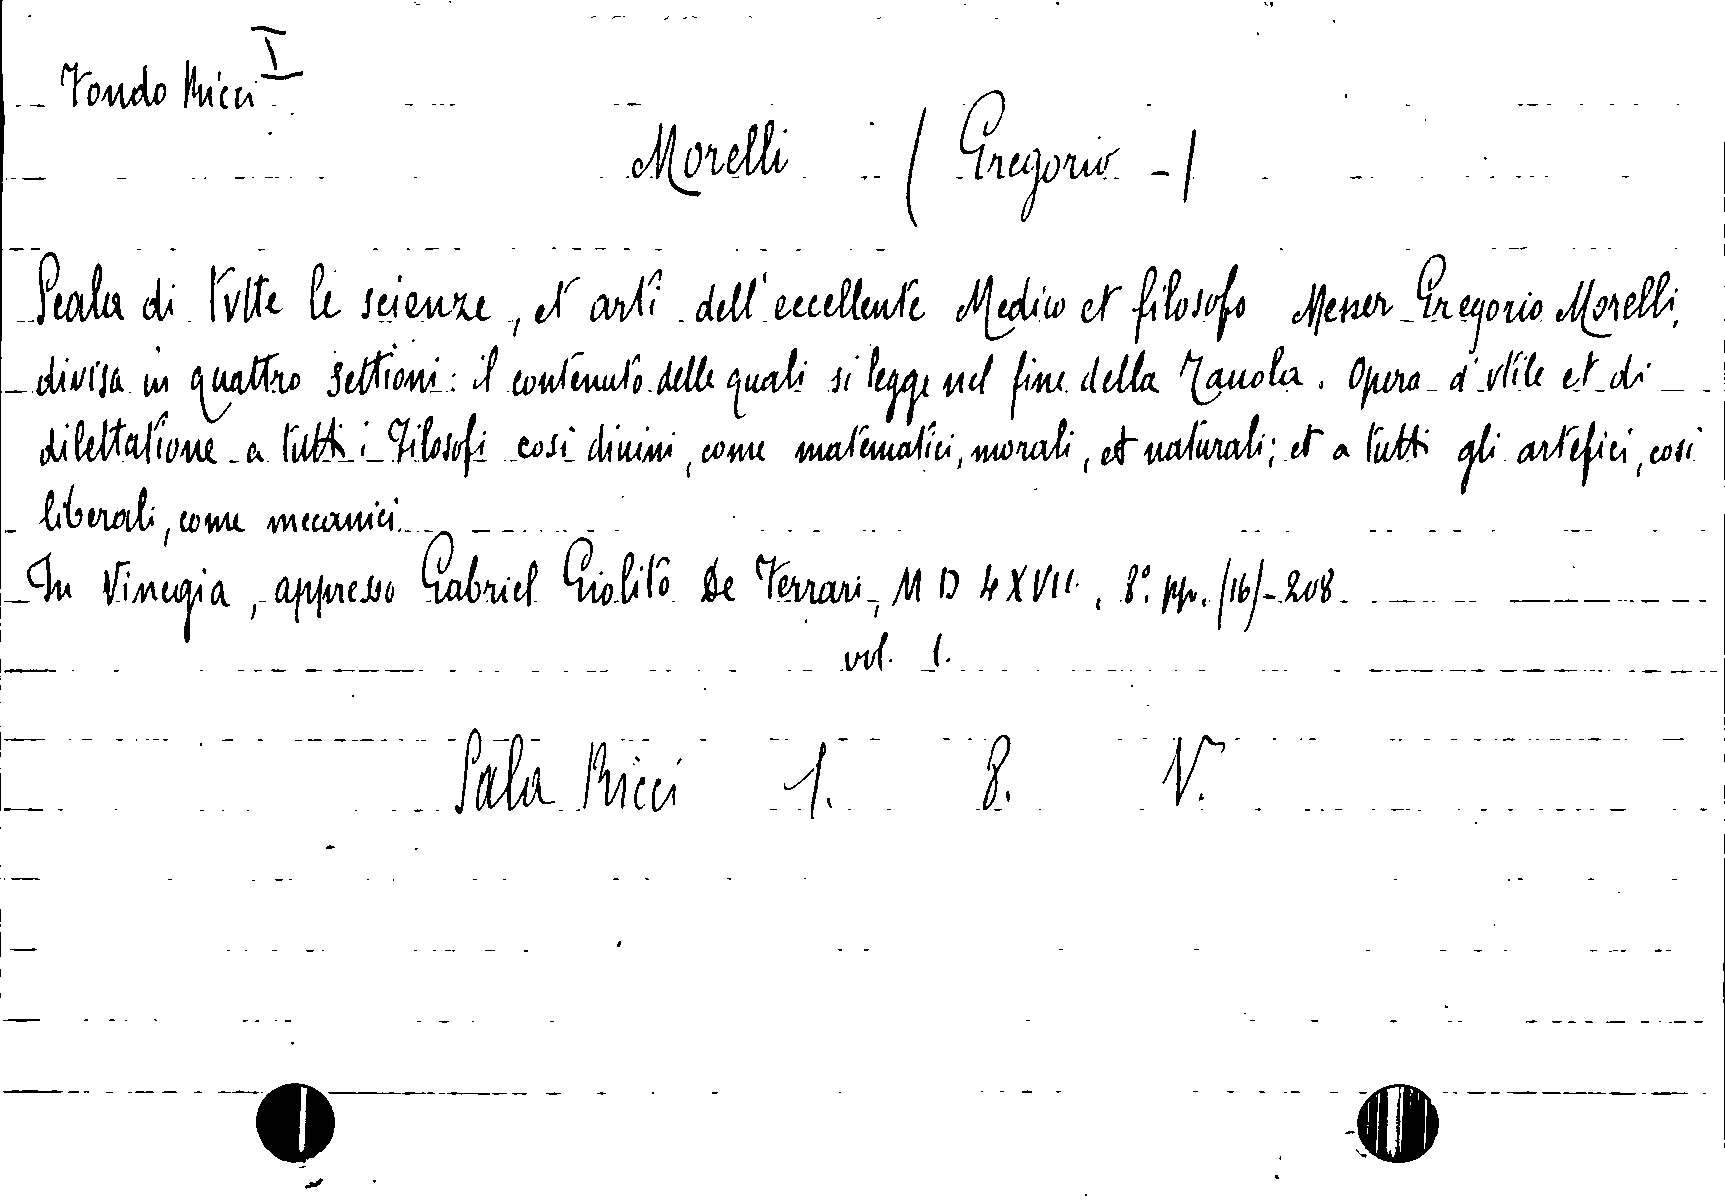 Fondo Ricci I
Morelli (Gregorio -)
Scala di tvtte le scienze, et arti dell'eccellente Medico et filosofo Messer Gregorio Morelli,
divisa in quattro settioni: il contenuto delle quali si legge nel fine della Tauola. Opera d'vtile et di
dilettatione a tutti i Filosofi cosi diuini, come matematici, morali, et naturali; et a tutti gli artefici, cosi
liberali, come mecanici.
In Vinegia, appresso Gabriel Giolito De Ferrari, MDLXVII. 8° pp. (16)-208
vol. 1.
Sala Ricci 1. 8. V.